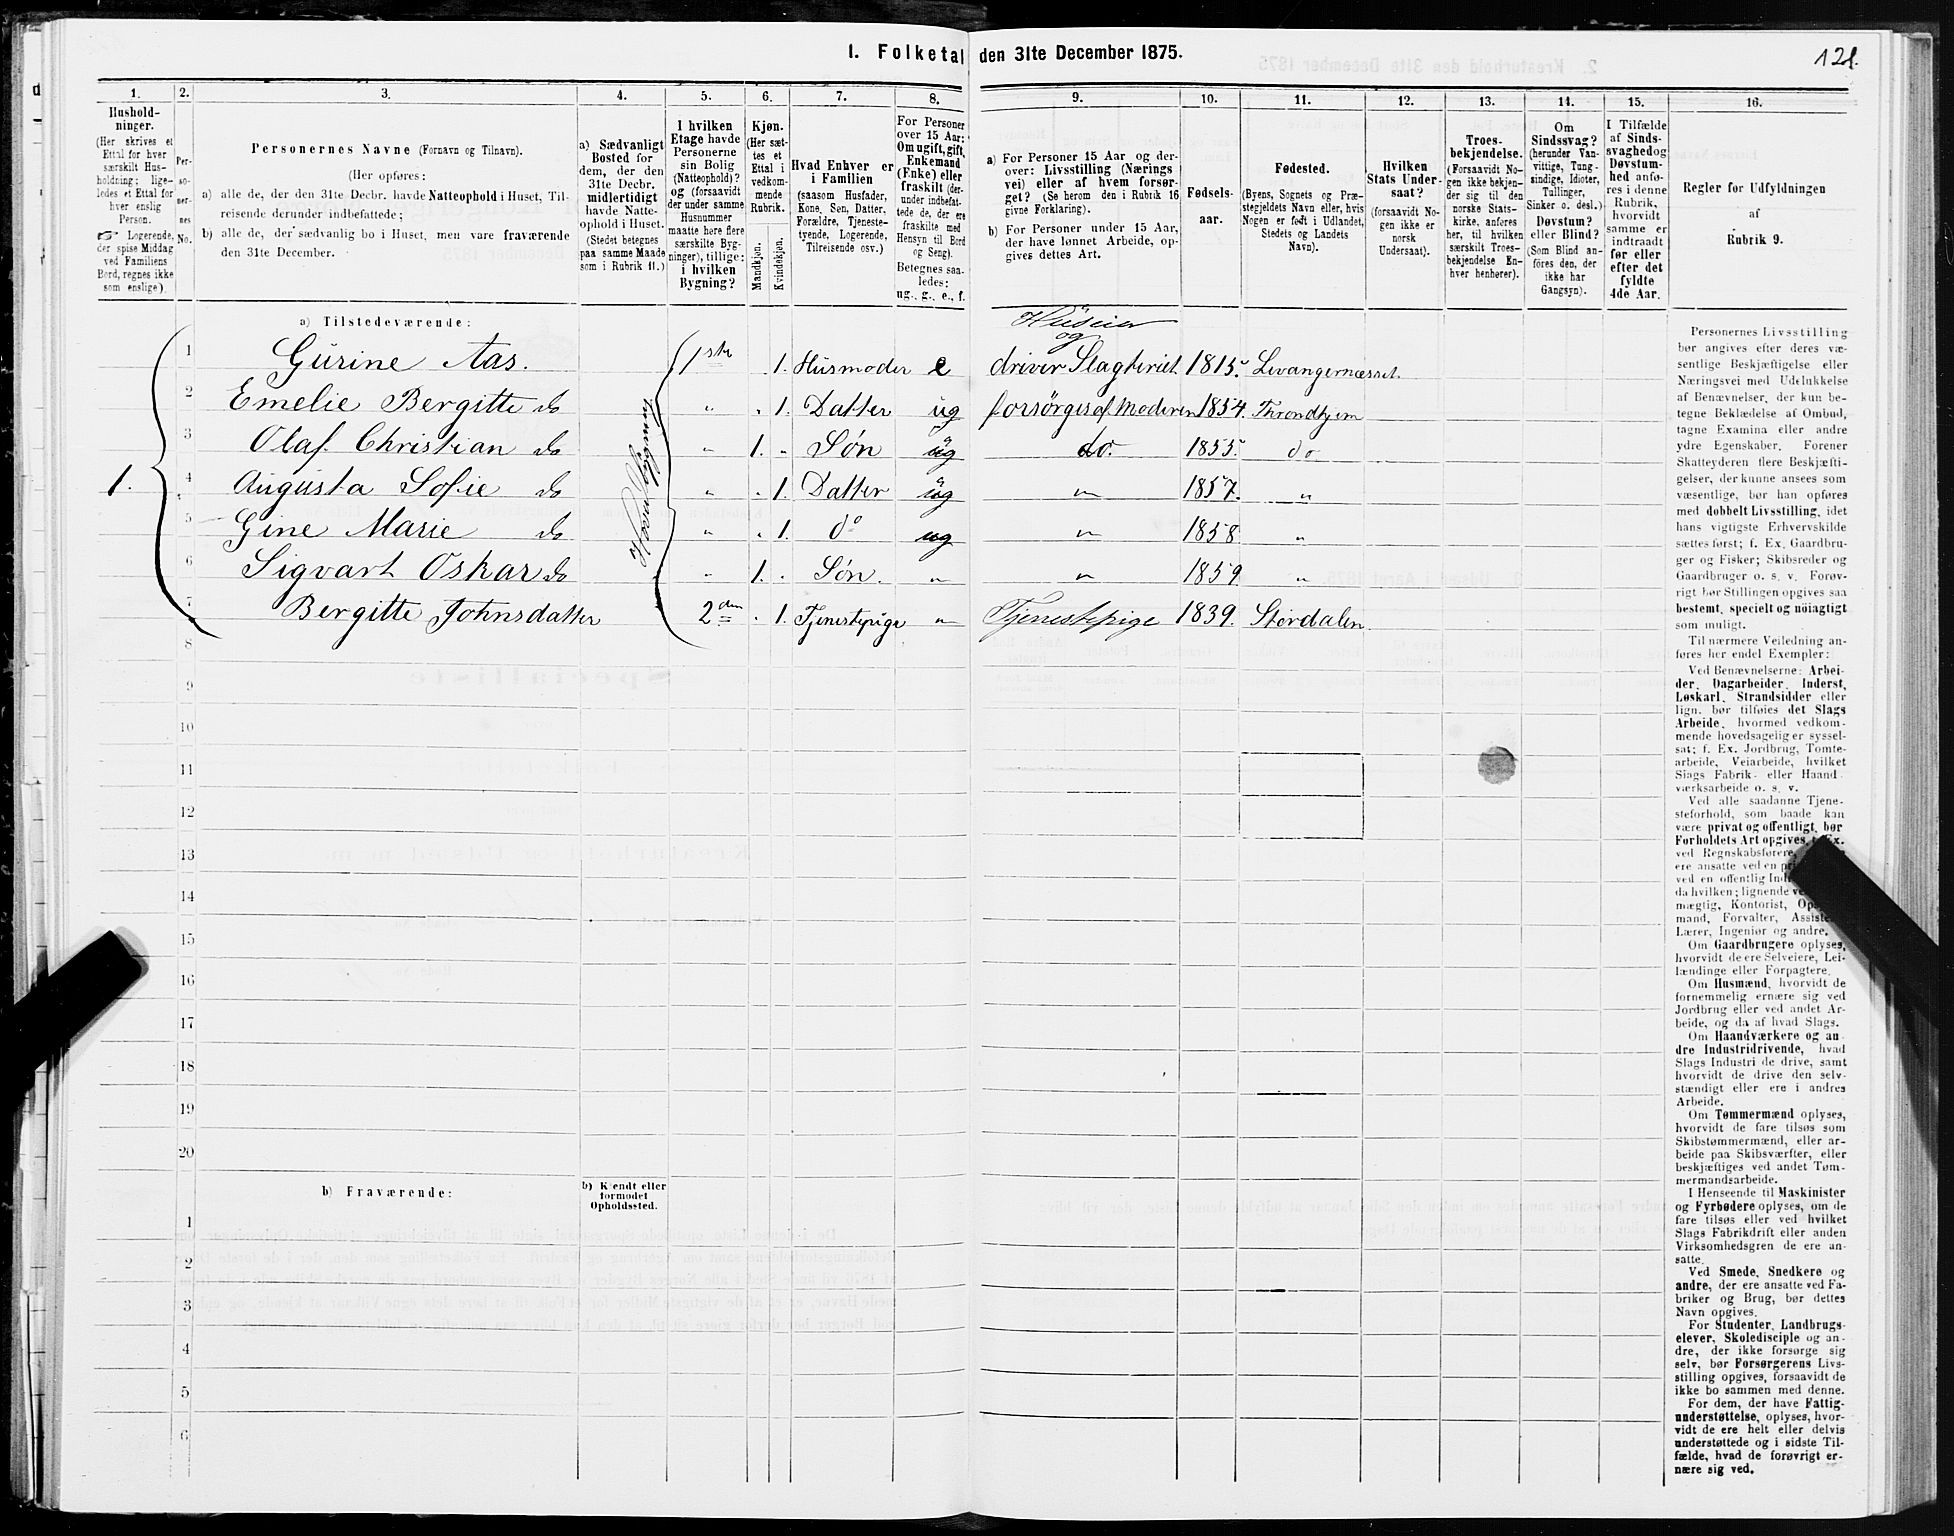 1. Folketal den 31te December 1875.
121.
1.
Hushold-
ninger.
(Her skrives et
Ettal for hver
særskilt Hus-
holdning; lige-
ledes et Ettal for
hver enslig
Person.
☞ Logerende,
der spise Middag
ved Familiens
Bord, regnes ikke
som enslige).
2.
Per-
so-
ner-
nes
No.
3.
Personernes Navne (Fornavn og Tilnavn).
(Her opføres:
a) alle de, der den 31te Decbr. havde Natteophold i Huset, Til-
reisende derunder indbefattede;
b) alle de, der sædvanlig bo i Huset, men vare fraværende
den 31te December.
4.
a) Sædvanligt
Bosted for
dem, der den
31te Decbr.
midlertidigt
havde Natte-
ophold i Huset.
(Stedet betegnes
paa samme Maade
som i Rubrik 11.)
5.
I hvilken
Etage havde
Personerne
sin Bolig
(Natteophold)?
og (forsaavidt
der under samme
Husnummer
maatte høre flere
særskilte Byg-
ninger), tillige:
i hvilken
Bygning?
6.
Kjøn.
(Her sæt-
tes et
Ettal i
vedkom-
mende
Rubrik.
Mandkjøn.
Kvindekjøn.
7.
Hvad Enhver er
i Familien
(saasom Husfader,
Kone, Søn, Datter,
Forældre, Tjeneste-
tyende, Logerende,
Tilreisende osv.)
8.
For Personer
over 15 Aar:
Om ugift, gift,
Enkemand
(Enke) eller
fraskilt (der-
under indbefat-
tede de, der ere
fraskilte med
Hensyn til Bord
og Seng).
Betegnes saa-
ledes:
ug., g., e., f.
9.
a) For Personer 15 Aar og der-
over: Livsstilling (Nærings
vei) eller af hvem forsør-
get? (Se herom den i Rubrik 16
givne Forklaring).
b) For Personer under 15 Aar,
der have lønnet Arbeide, op-
gives dettes Art.
10.
Fødsels-
aar.
11.
Fødested.
(Byens, Sognets og Præ-
stegjeldets Navn eller, hvis
Nogen er født i Udlandet,
Stedets og Landets
Navn).
12.
Hvilken
Stats Under-
saat?
(forsaavidt No-
gen ikke er
norsk
Undersaat).
13.
Troes-
bekjendelse.
(Forsaavidt No-
gen ikke bekjen-
der sig til den
norske Stats-
kirke, anføres
her, til hvilken
særskilt Troes-
bekjendelse En-
hver henhører).
14.
Om
Sindssvag?
(herunder Van-
vittige, Tung-
sindige, Idioter,
Tullinger,
Sinker o. desl.)
Døvstum?
eller Blind?
(Som Blind an-
føres den, der
ikke har
Gangsyn).
15.
I Tilfælde
af Sinds-
svaghed og
Døvstum-
hed anfø-
res i denne
Rubrik,
hvorvidt
samme er
indtraadt
før eller
efter det
fyldte
4de Aar.
16.
Regler for Udfyldningen
af
Rubrik 9.
a) Tilstedeværende:
1.
Hoved Bygning
Huseier
og
1 Gurine Aas. 1ste . 1. Husmoder e driver Slagteriet 1815. Levangernæsset.
2 Emelie Bergitte do " . 1. Datter ug forsørges af Moderen 1854. Throndhjem
3 Olaf Christian do " 1. " Søn ug do. 1855. do
4 Augusta Sofie do " . 1. Datter ug " 1857. "
5 Gine Marie do " . 1. do ug " 1858. "
6 Sigvart Oskar do " 1. . Søn. " " 1859. "
7 Bergitte Johnsdatter 2den . 1. Tjenestepige " Tjenestepige 1839. Stordalen.
8
9
10
11
12
13
14
15
16
17
18
19
20
b) Fraværende:
b) Kjendt eller
formodet
Opholdssted.
1
2
3
4
5
6
Personernes Livsstilling
bør angives efter deres væ-
sentlige Beskjæftigelse eller
Næringsvei med Udelukkelse
af Benævnelser, der kun be-
tegne Beklædelse af Ombud,
tagne Examina eller andre
ydre Egenskaber. Forener
Skatteyderen flere Beskjæfti-
gelser, der kunne ansees som
væsentlige, bør han opføres
med dobbelt Livsstilling, idet
hans vigtigste Erhvervskilde
sættes først; f. Ex. Gaardbru-
ger og Fisker; Skibsreder og
Gaardbruger o. s. v. Forøv-
rigt bør Stillingen opgives saa
bestemt, specielt og nöiagtigt
som muligt.
Til nærmere Veiledning an-
føres her endel Exempler:
Ved Benævnelserne: Arbei-
der, Dagarbeider, Inderst,
Løskarl, Strandsidder eller
lign. bør tilføies det Slags
Arbeide, hvormed vedkom-
mende hovedsagelig er syssel-
sat; f. Ex. Jordbrug, Tomte-
arbeide, Veiarbeide, hvilket
Slags Fabrik- eller Haand-
værksarbeide o. s. v.
Ved alle saadanne Tjene-
steforhold, som baade kan
være privat og offentligt, bør
Forholdets Art opgives, f. Ex.
ved Regnskabsførere,
ere ansatte ved en
ved en offentlig
da hvilken; lignende
mægtig, Kontorist,
mand, Forvalter,
Lærer, Ingeniør og andre.
Om Gaardbrugere oplyses,
hvorvidt de ere Selveiere, Lei-
lændinge eller Forpagtere.
Om Husmænd, hvorvidt de
fornemmelig ernære sig ved
Jordbrug eller ved andet Ar-
beide, og da af hvad Slags.
Om Haandværkere og an-
dre Industridrivende, hvad
Slags Industri de drive, samt
hvorvidt de drive den selv-
stændigt eller ere i andres
Arbeide.
Om Tømmermænd oplyses,
hvorvidt de fare tilsøs som
Skibstømmermænd, eller ar-
beide paa Skibsværfter, eller
beskjæftiges ved andet Tøm-
mermandsarbeide.
I Henseende til Maskinister
og Fyrbødere oplyses, om de
fare tilsøs eller ved hvilket
Slags Fabrikdrift eller anden
Virksomhedsgren de ere an-
satte.
Ved Smede, Snedkere og
andre, der ere ansatte ved Fa-
briker og Brug, bør dettes
Navn opgives.
For Studenter, Landbrugs-
elever, Skoledisciple og an-
dre, der ikke forsørge sig
selv, bør Forsørgerens Livs-
stilling opgives, forsaavidt de
ikke bo sammen med denne.
For dem, der have Fattig-
understøttelse, oplyses, hvor-
vidt de ere helt eller delvis
understøttede og i sidste Til-
fælde, hvad de forøvrigt er-
nære sig ved.